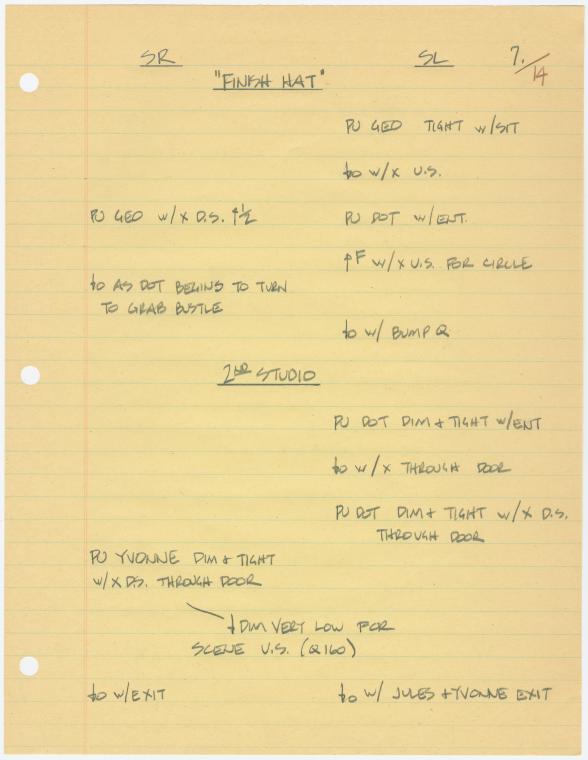 SR SL 7./14
"FINISH HAT"
PU GEO TIGHT w/SIT
↓o w/X U.S.
PU GEO w/X D.S. ↑½ PU DOT w/ENT.
↑F w/X U.S. FOR CIRCLE
↓o AS DOT BEGINS TO TURN
TO GRAB BUSTLE
↓o w/ BUMP Q
2ND STUDIO
PU DOT DIM + TIGHT w/ENT
↓o w/X THROUGH DOOR
PU DOT DIM + TIGHT w/X D.S.
THROUGH DOOR
PU YVONNE DIM + TIGHT
w/X DS. THROUGH DOOR
↓DIM VERY LOW FOR
SCENE U.S. (Q160)
↓o w/EXIT ↓o w/ JULES + YVONNE EXIT